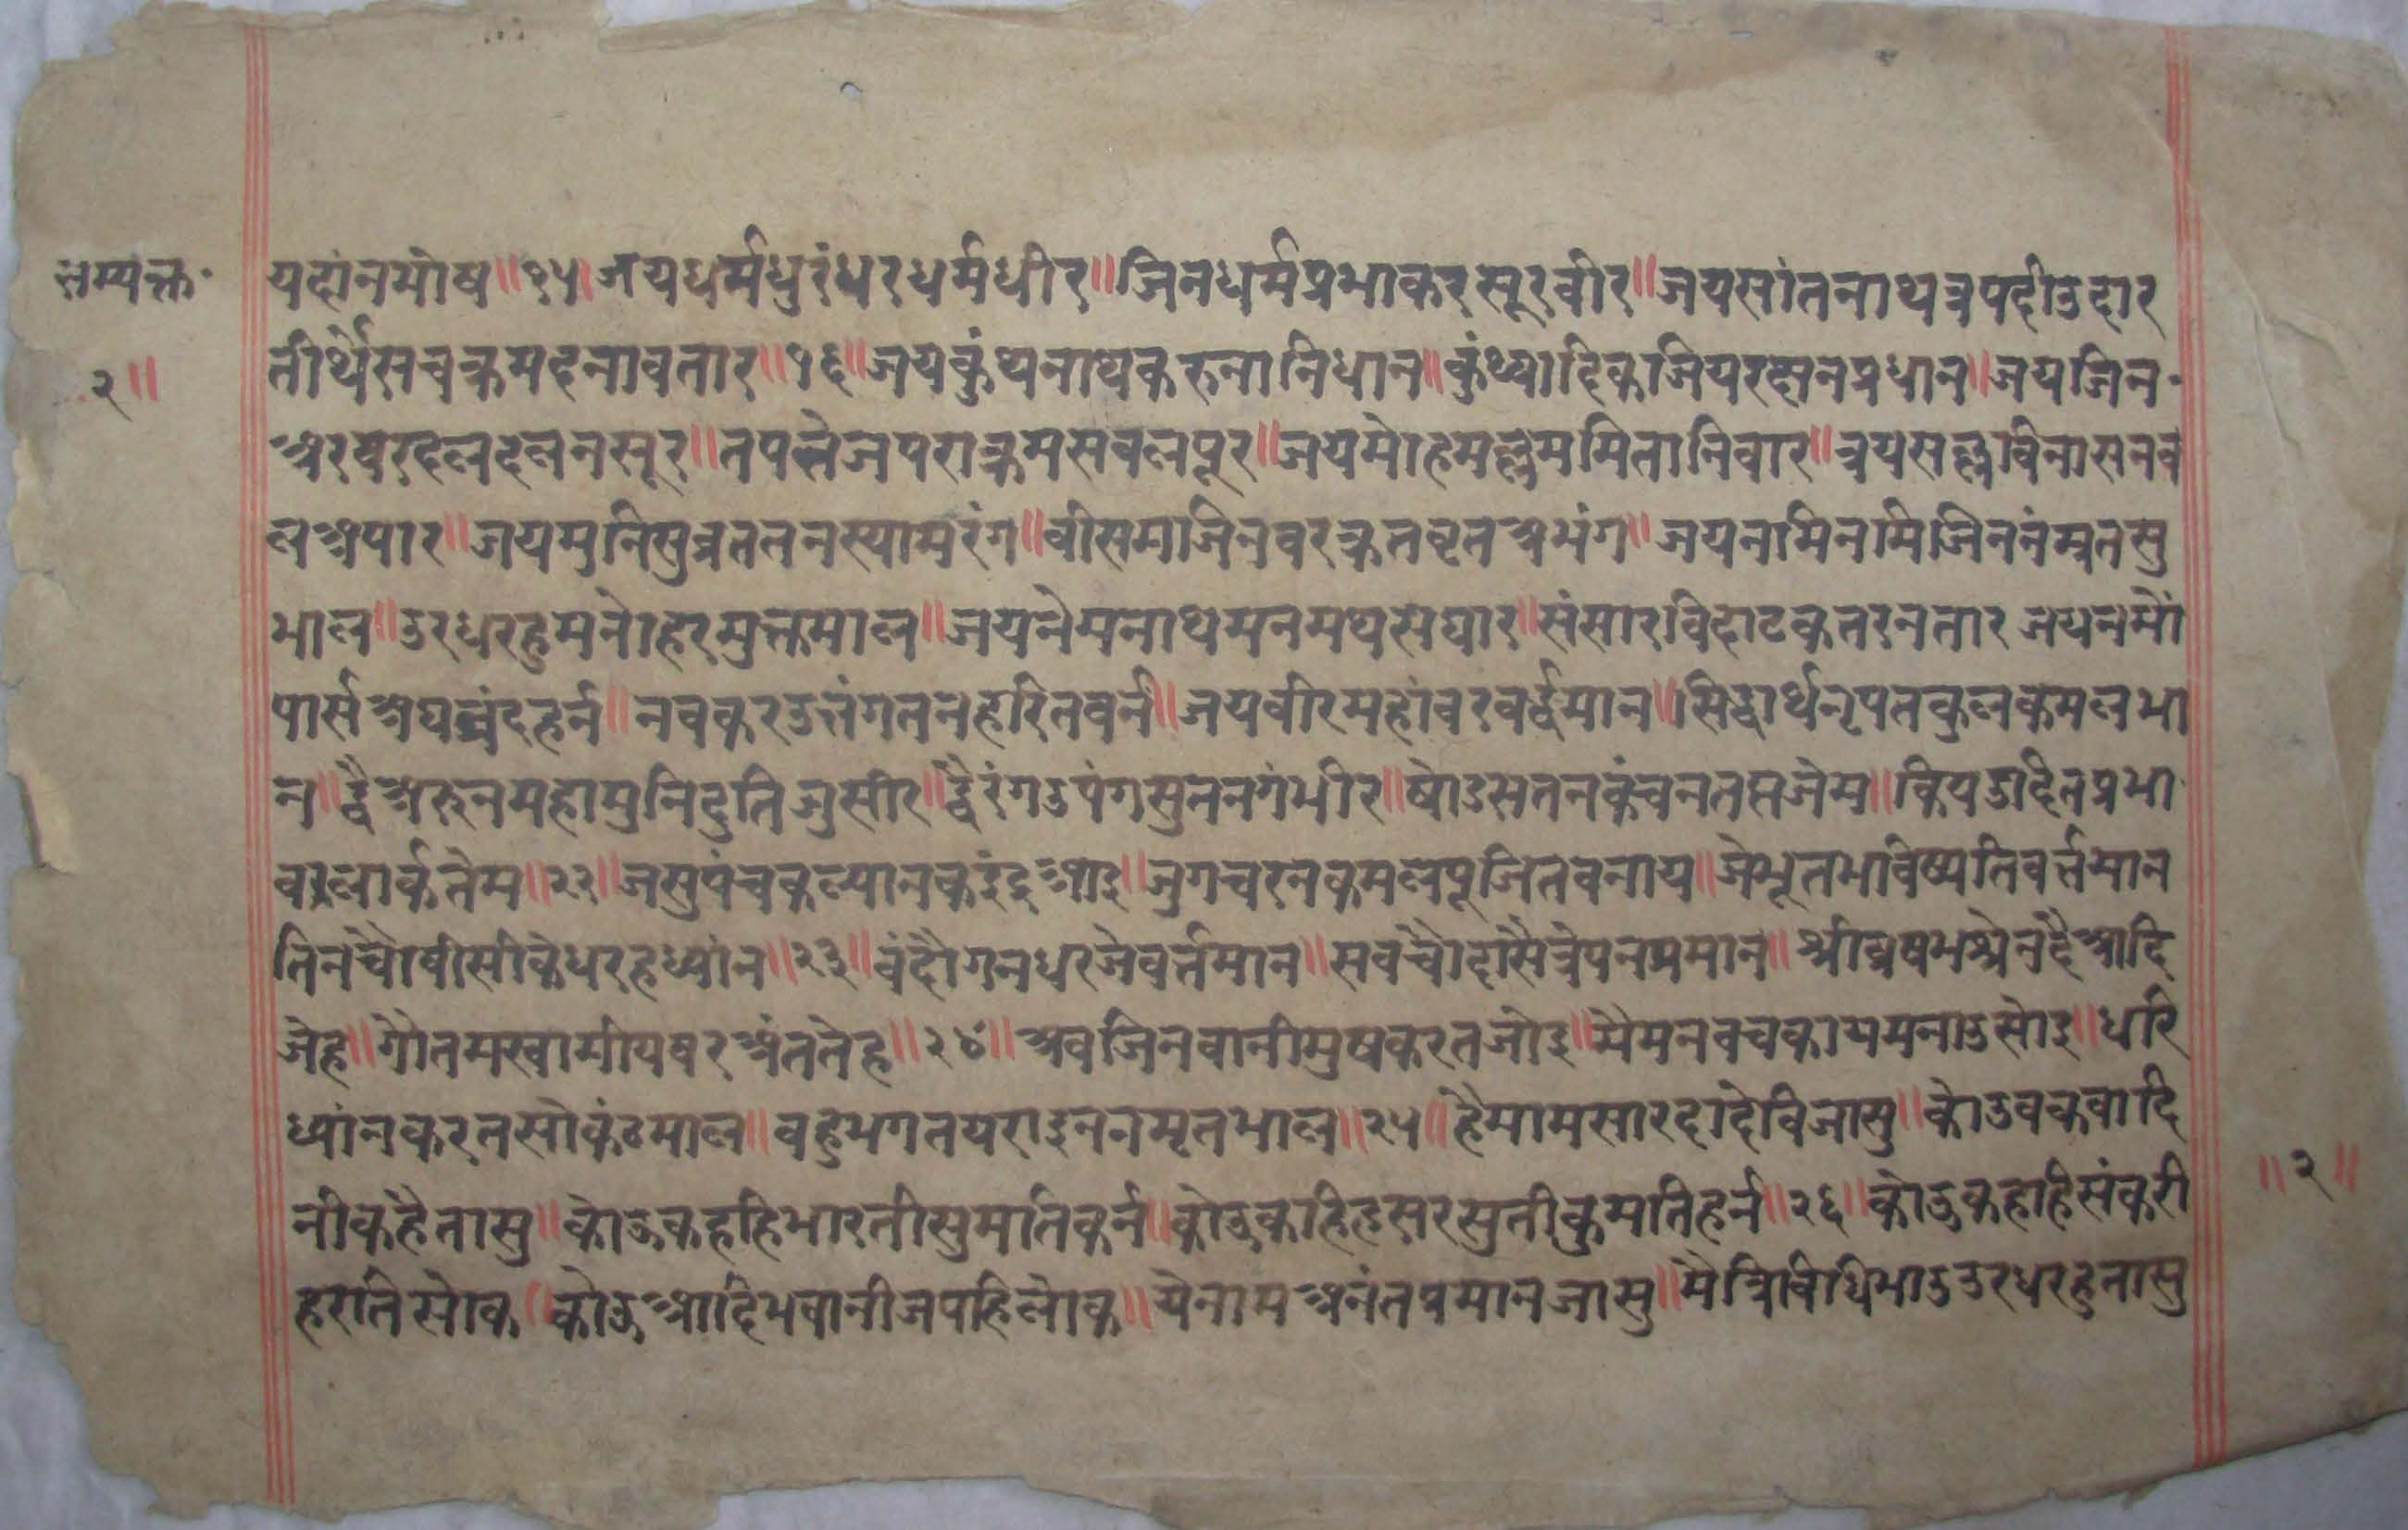 सम्यक्त
२॥
यहांनमोष॥१५॥जयधर्मधुरंधरधर्मधीर॥जिनधर्मप्रभाकरसूरवीर॥जयसांतनाथत्रपदीउदार
तीर्थेसचक्रमदनावतार॥१६॥जयकुंथनाथकरुनानिधान॥कुंथ्यादिकजियरक्षनप्रधान॥जयजिन
अरषरदलदलनसूर॥तपतेजपराक्रमसवलपूर॥जयमोहमल्लममितानिवार॥त्रयसल्लविनासनव
लअपार॥जयमुनिसुव्रततनस्यामरंग॥वीसमजिनवरक्रतवृतअभंग॥जयनमिनमिजिननंम्रतसु
भाल॥उरधरहुमनोहरमुक्तमाल॥जयनेमनाथमनमथसंघार॥संसारविहाटकतरनतार जयनमों
पार्सअघव्रंदहर्न॥नवकरउत्तंगतनहरितवर्न॥जयवीरमहांवरवर्द्धमान॥सिद्धार्थनृपतकुलकमलभा
न॥द्वैअरुनमहामुनिदुतिजुसीर॥द्वैरंगउपंगसुतनगंभीर॥षोडसतनकंचनतप्तजेम॥कियउदितप्रभा
वालार्कतेम॥२२॥जसुपंचकल्यानकइंद्रआइ॥जुगचरनकमलपूजितवनाय॥जेभूतभाविष्यतिवर्त्तमान
तिनचौवीसीकेधरहध्यांन॥२३॥वंदौगनधरजेवर्त्तमान॥सवचौदासैत्रेपनप्रमान॥श्रीव्रषभश्येनहैआदि
जेह॥गौतमस्वामीयषरअंततेह॥२४॥अवजिनवानीमुषकरतजोइ॥मैमनवचकायमनाउसोइ॥धरि
ध्यांनकरतसोकंठमाल॥वहुभगतयराइननमृतभाल॥२५॥हैमामसारदादेविजासु॥कोउवकवादि
नीकहैतासु॥कोऊकहहिभारतीसुमतिकर्न॥कोउकहिहसरसुतीकुमतिहर्न॥२६॥कोऊकहहिसंकरी
हरतिसोक॥कोऊआदिभवानीजपहिलोक॥येनामअनंतप्रमानजासु॥मैत्रिविधिभाउउरधरहुतासु
॥२॥